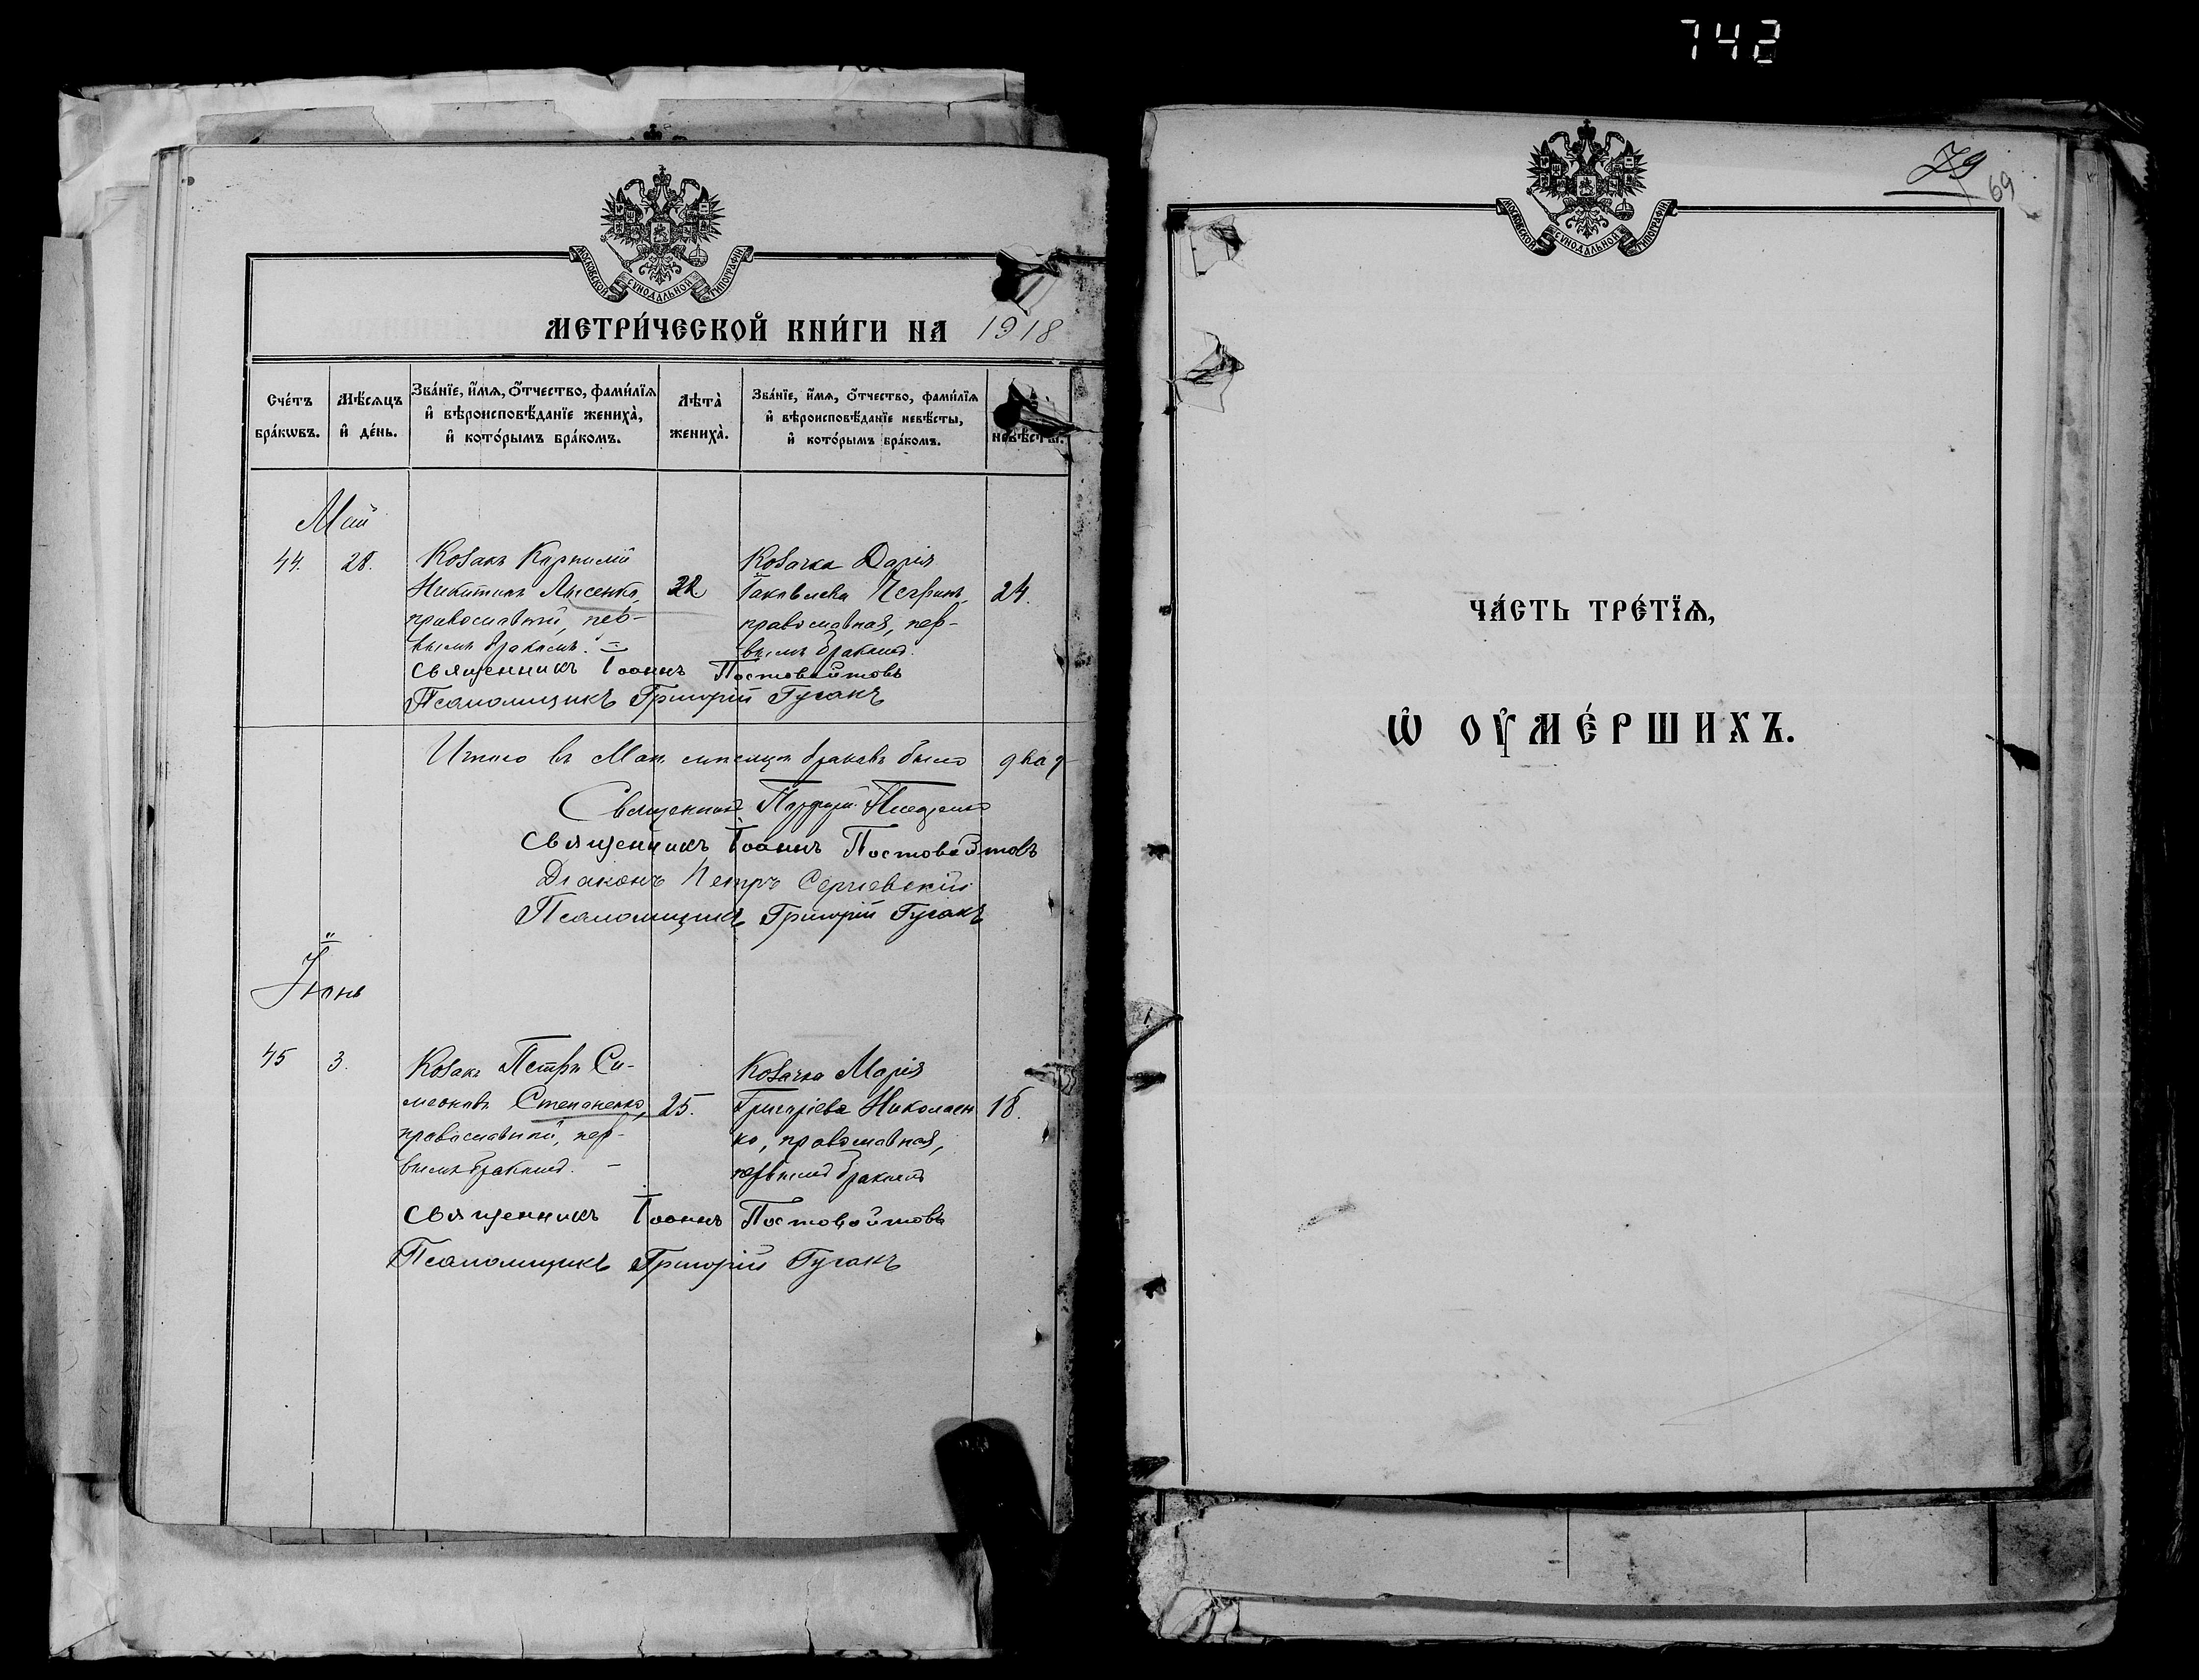 742
МОСКОВСКОЙ СѴНОДАЛЬНОЙ ТИПОГРАФІИ
МЕТРИ́ЧЕСКОЙ КНИ́ГИ НА 1918
Сче́тъ бра́кѡвъ.
Мѣ́сяцъ и҆ де́нь.
Зва́нїе, и҆́мѧ, ѻ҆́тчество, фами́лїѧ
и҆ вѣроисповѣ́данїе жениха̀,
и҆ кото́рымъ бра́комъ.
Лѣта̀ жениха̀.
Зва́нїе, и҆́мѧ, ѻ҆́тчество, фами́лїѧ
и҆ вѣроисповѣ́данїе невѣ́сты,
и҆ кото́рымъ бра́комъ.
невѣ́сты.
Май
44. 28.
Козакъ
Никитинъ Лысенко,
православный, пер-
вымъ бракомъ.
22
Козачка Дарія
Іаковлева
православная, пер-
вымъ бракомъ.
24.
Священникъ Іоаннъ Постовойтовъ
Псаломщикъ Григорій Гусакъ
Итого въ Маѣ мѣсяцѣ браковъ было два 2
Священникъ
Священникъ Іоаннъ Постовойтовъ
Діаконъ Петръ Сергіевскій
Псаломщикъ Григорій Гусакъ
Іюнь
45 3.
Козакъ Петръ Си-
меоновъ Степаненко,
православный, пер-
вымъ бракомъ. –
25.
Козачка Марія
Григоріева Николаен
ко, православная,
первымъ бракомъ
18.
Священникъ Іоаннъ Постовойтовъ
Псаломщикъ Григорій Гусакъ
79
69
МОСКОВСКОЙ СѴНОДАЛЬНОЙ ТИПОГРАФІИ
ЧА́СТЬ ТРЕ́ТЇѦ,
Ѡ҆ ОУ҆МЕ́РШИХЪ.